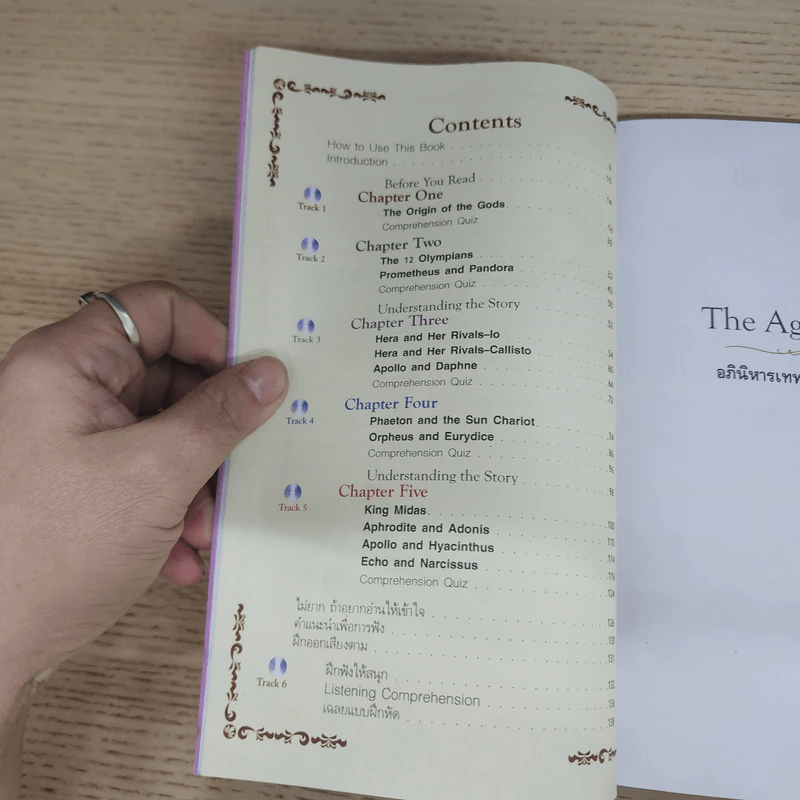 Contents
How to Use This Book
Introduction
Before You Read
Track 1
Chapter One
The Origin of the Gods
Comprehension Quiz
Track 2
Chapter Two
The 12 Olympians
Prometheus and Pandora
Comprehension Quiz
Understanding the Story
Track 3
Chapter Three
Hera and Her Rivals–Io
Hera and Her Rivals–Callisto
Apollo and Daphne
Comprehension Quiz
Track 4
Chapter Four
Phaeton and the Sun Chariot 74
Orpheus and Eurydice 86
Comprehension Quiz
Understanding the Story 98
Track 5
Chapter Five
King Midas 100
Aphrodite and Adonis 110
Apollo and Hyacinthus 114
Echo and Narcissus 116
Comprehension Quiz 124
ไม่ยาก ถ้าอยากอ่านให้เข้าใจ 126
คำแนะนำเพื่อการฟัง 130
ฝึกออกเสียงตาม 131
Track 6
ฝึกฟังให้สนุก 132
Listening Comprehension 136
เฉลยแบบฝึกหัด 138
The Ag
อภินิหารเทพ